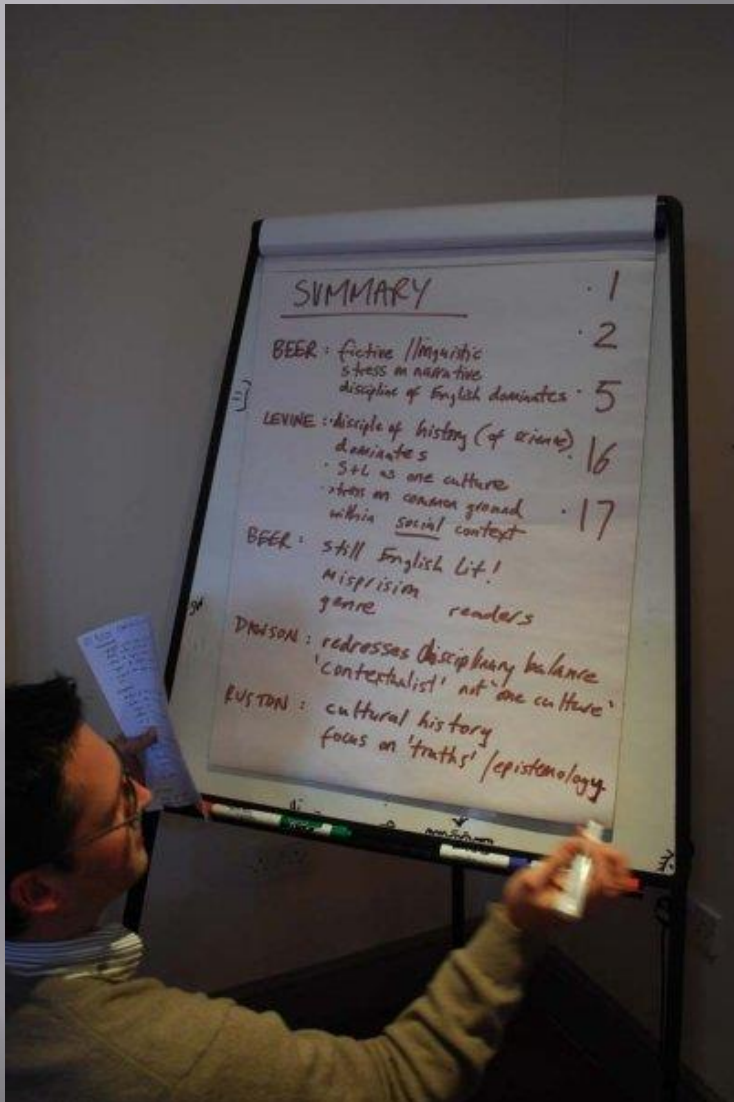 SUMMARY
· 1
· 2
BEER : fictive / linguistic
stress on narrative
discipline of English dominates
· 5
LEVINE : · disciple of history (of science)
dominates
· 16
· S+L as one culture
· stress on common ground
within social context
· 17
BEER : still English Lit!
misprision
genre readers
DAWSON : redresses disciplinary balance
'contextualist' not 'one culture'
RUSTON : cultural history
focus on 'truths' / epistemology